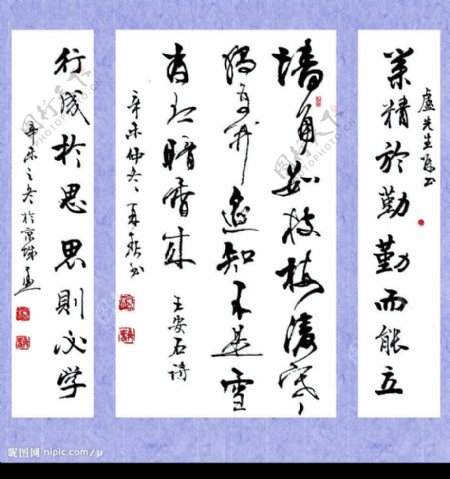 盧先生
業精於勤勤而能立
墙角数枝梅凌寒
獨自开遥知不是雪
为有暗香来 王安石诗
辛未仲冬
行成於思思則必学
辛未之冬於京城
昵图网 nipic.com/μ